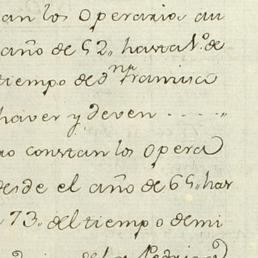 an los Operarios au
año de 52,, hasta 1.º de
tiempo de d.ⁿᵃ Franisca
haver y deven - - - - ,,
no constan los opera
desde el año de 65,, has
73,, del tiempo de mi